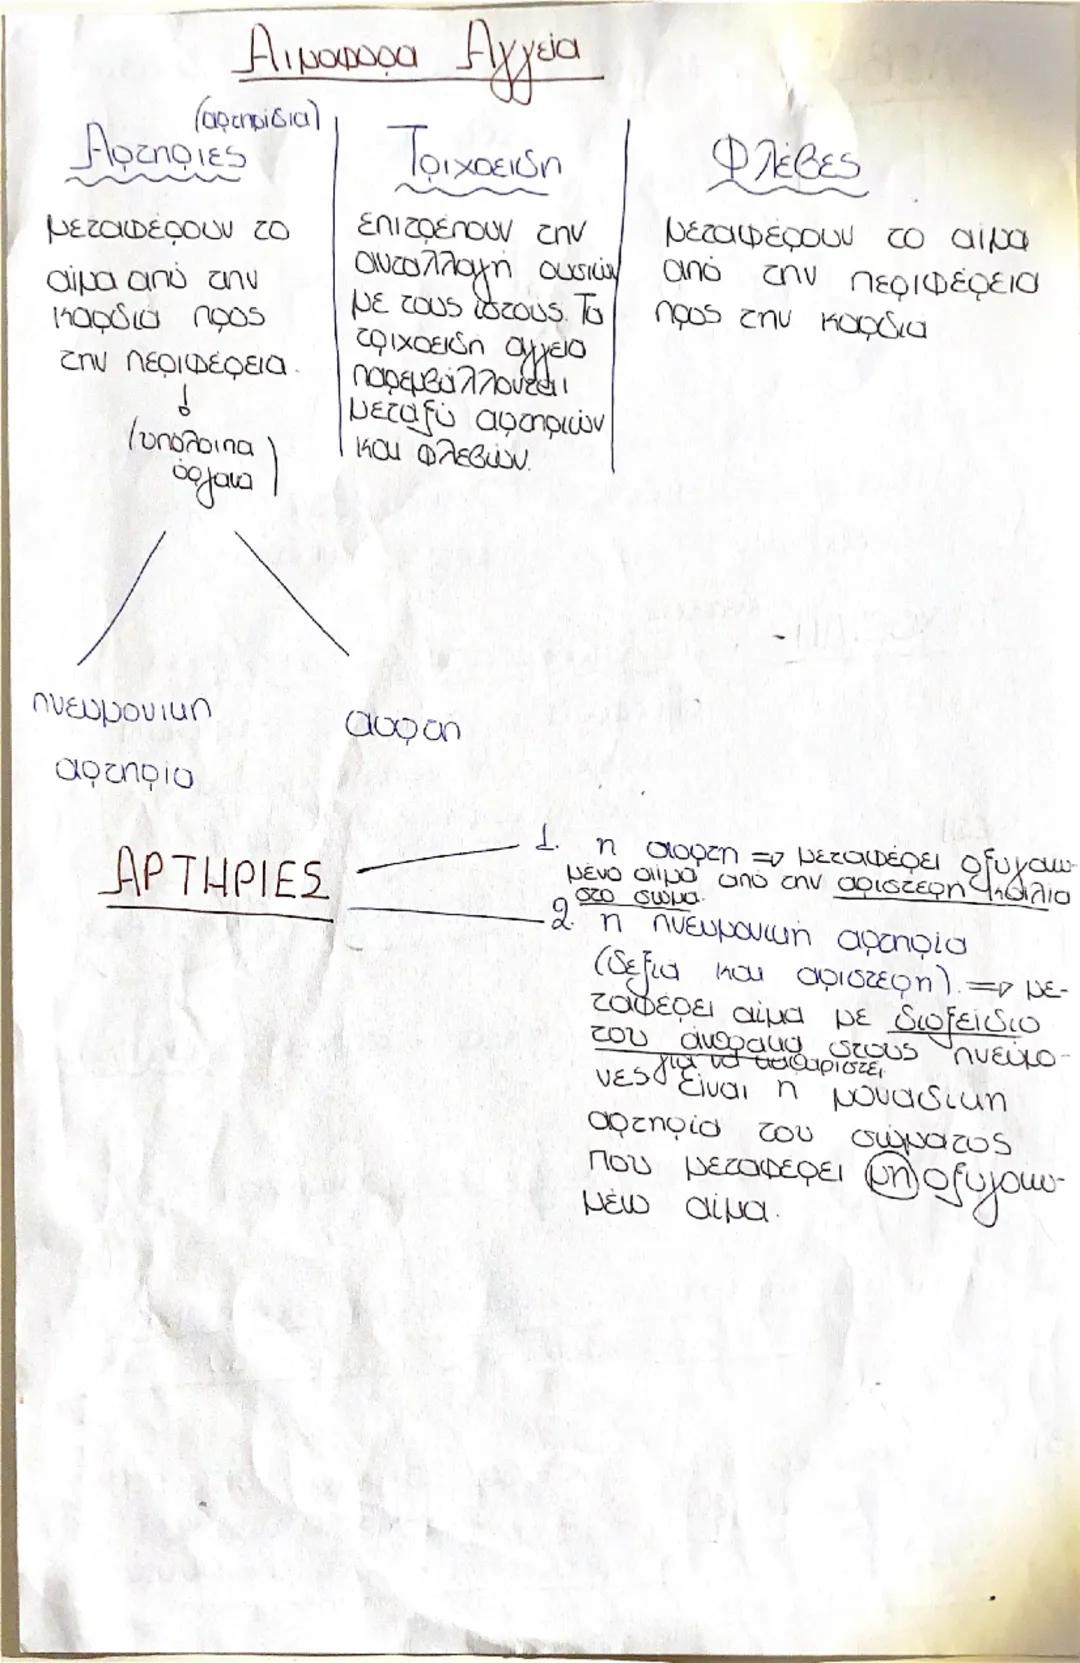 Αιμοφορα Αγγεία
(αρτηρίδια)
Αρτηριες
μεταφέρουν το
αίμα από την
καρδιά προς
την περιφέρεια.
(υπόλοιπα
όργανα)
Τριχοειδη
επιτρέπουν την
ανταλλαγή ουσιών
με τους ιστους. Τα
τριχοειδη αγγεια
παρεμβάλλονται
μεταξύ αρτηριών
και φλεβών.
Φλέβες
μεταφέρουν το αίμα
από την περιφέρεια
προς την καρδια
πνευμονικη
αρτηρια
αορτη
ΑΡΤΗΡΙΕΣ
1. η αορτη => μεταφέρει οξυγονω-
μένο αίμα από την αριστερη κοιλια
στο σωμα.
2. η πνευμονικη αρτηρία
(δεξια και αριστερη). => με-
ταφέρει αίμα με διοξείδιο
του άνθρακα στους πνεύμο-
για να καθαριστει
νες Είναι η μοναδικη
αρτηρία του σώματος
που μεταφερει μη οξυγονω-
μένο αίμα.